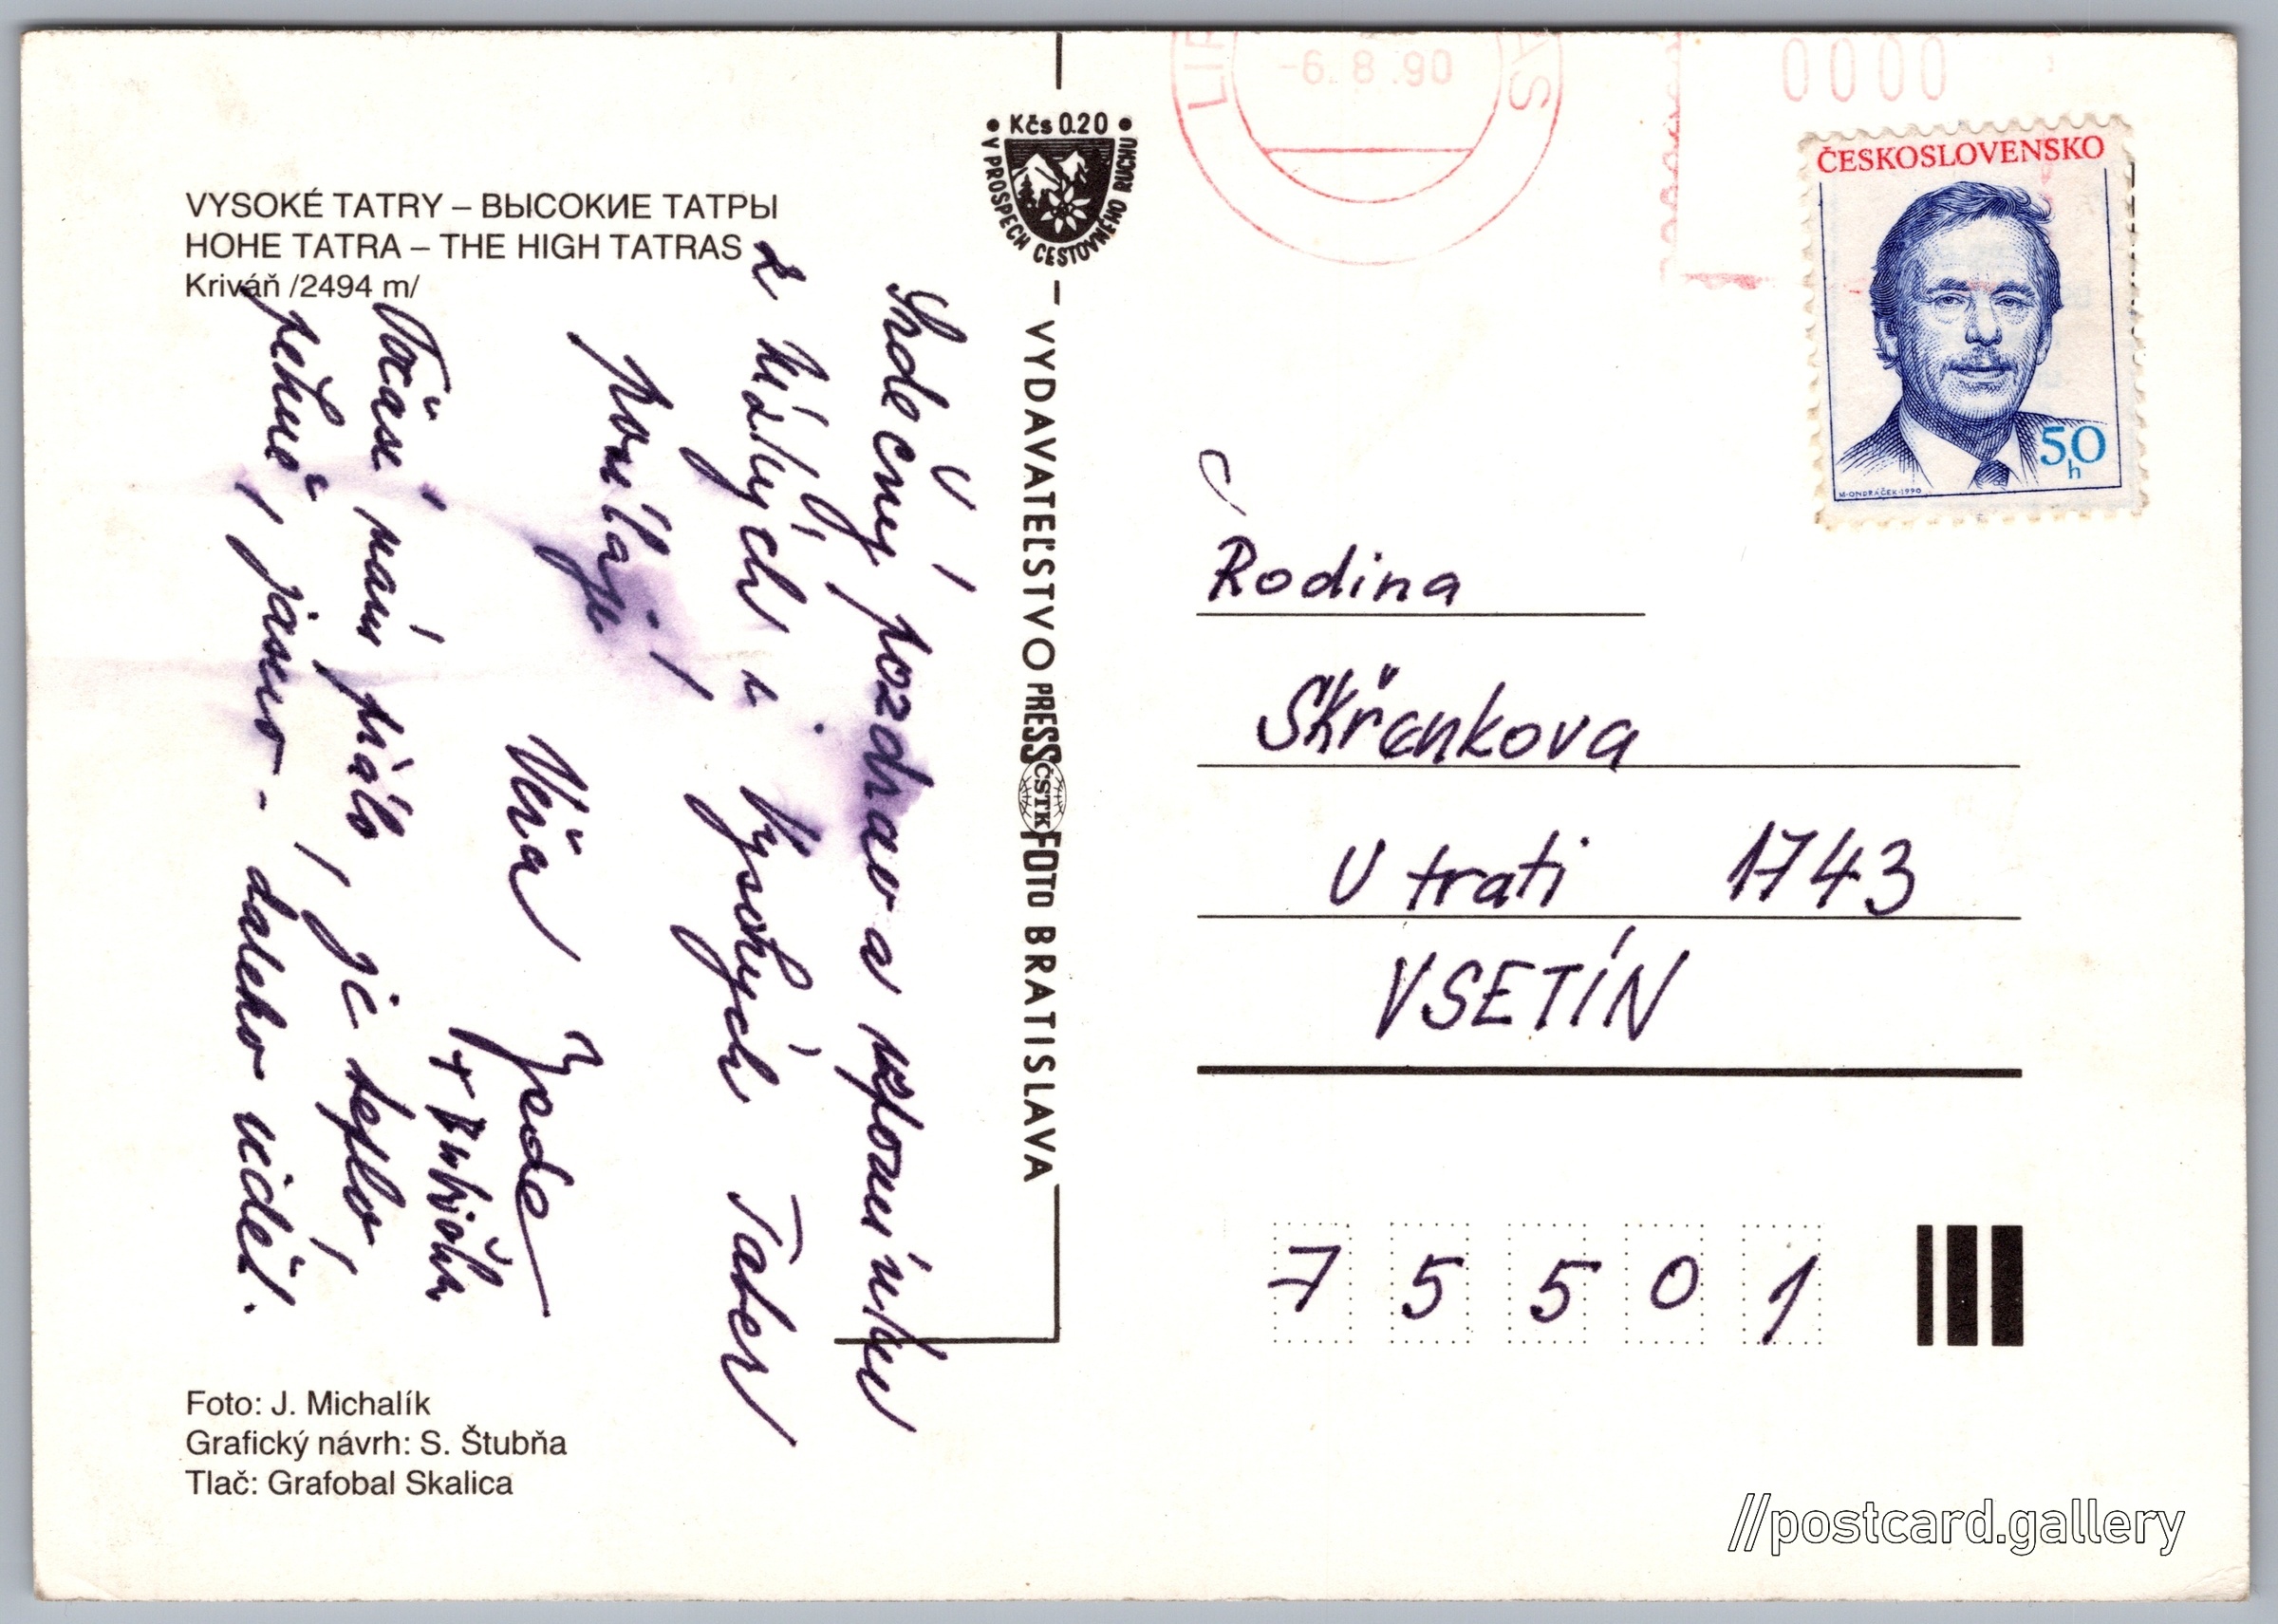 VYSOKÉ TATRY – ВЫСОКИЕ ТАТРЫ
HOHE TATRA – THE HIGH TATRAS
Kriváň /2494 m/
Srdečný pozdrav a vzpomínku
z krásných Vysokých Tater
posílají
Věra
Počasí nám přálo, je teplo
pěkně, jasno - daleko vidět.
Foto: J. Michalík
Grafický návrh: S. Štubňa
Tlač: Grafobal Skalica
• Kčs 0.20 •
V PROSPECH CESTOVNÉHO RUCHU
VYDAVATEĽSTVO PRESSFOTO BRATISLAVA
ČSTK
-6. 8. 90
0000
ČESKOSLOVENSKO
50 h
M. ONDRÁČEK · 1990
Rodina
Skřenkova
U trati 1743
VSETÍN
75501
//postcard.gallery